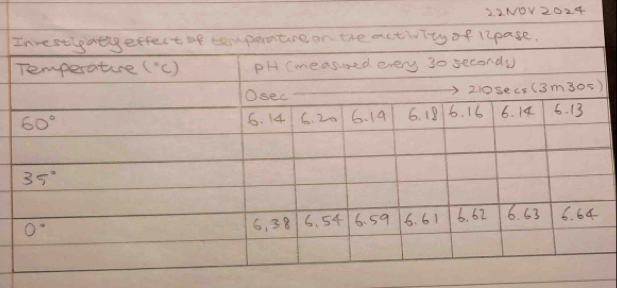 22 NOV 2024
Investigating effect of temperature on the activity of lipase.
Temperature (°C) pH (measured every 30 seconds)
0sec → 210secs (3m30s)
60° 6.14 6.20 6.19 6.18 6.16 6.14 6.13
35°
0° 6,38 6.54 6.59 6.61 6.62 6.63 6.64